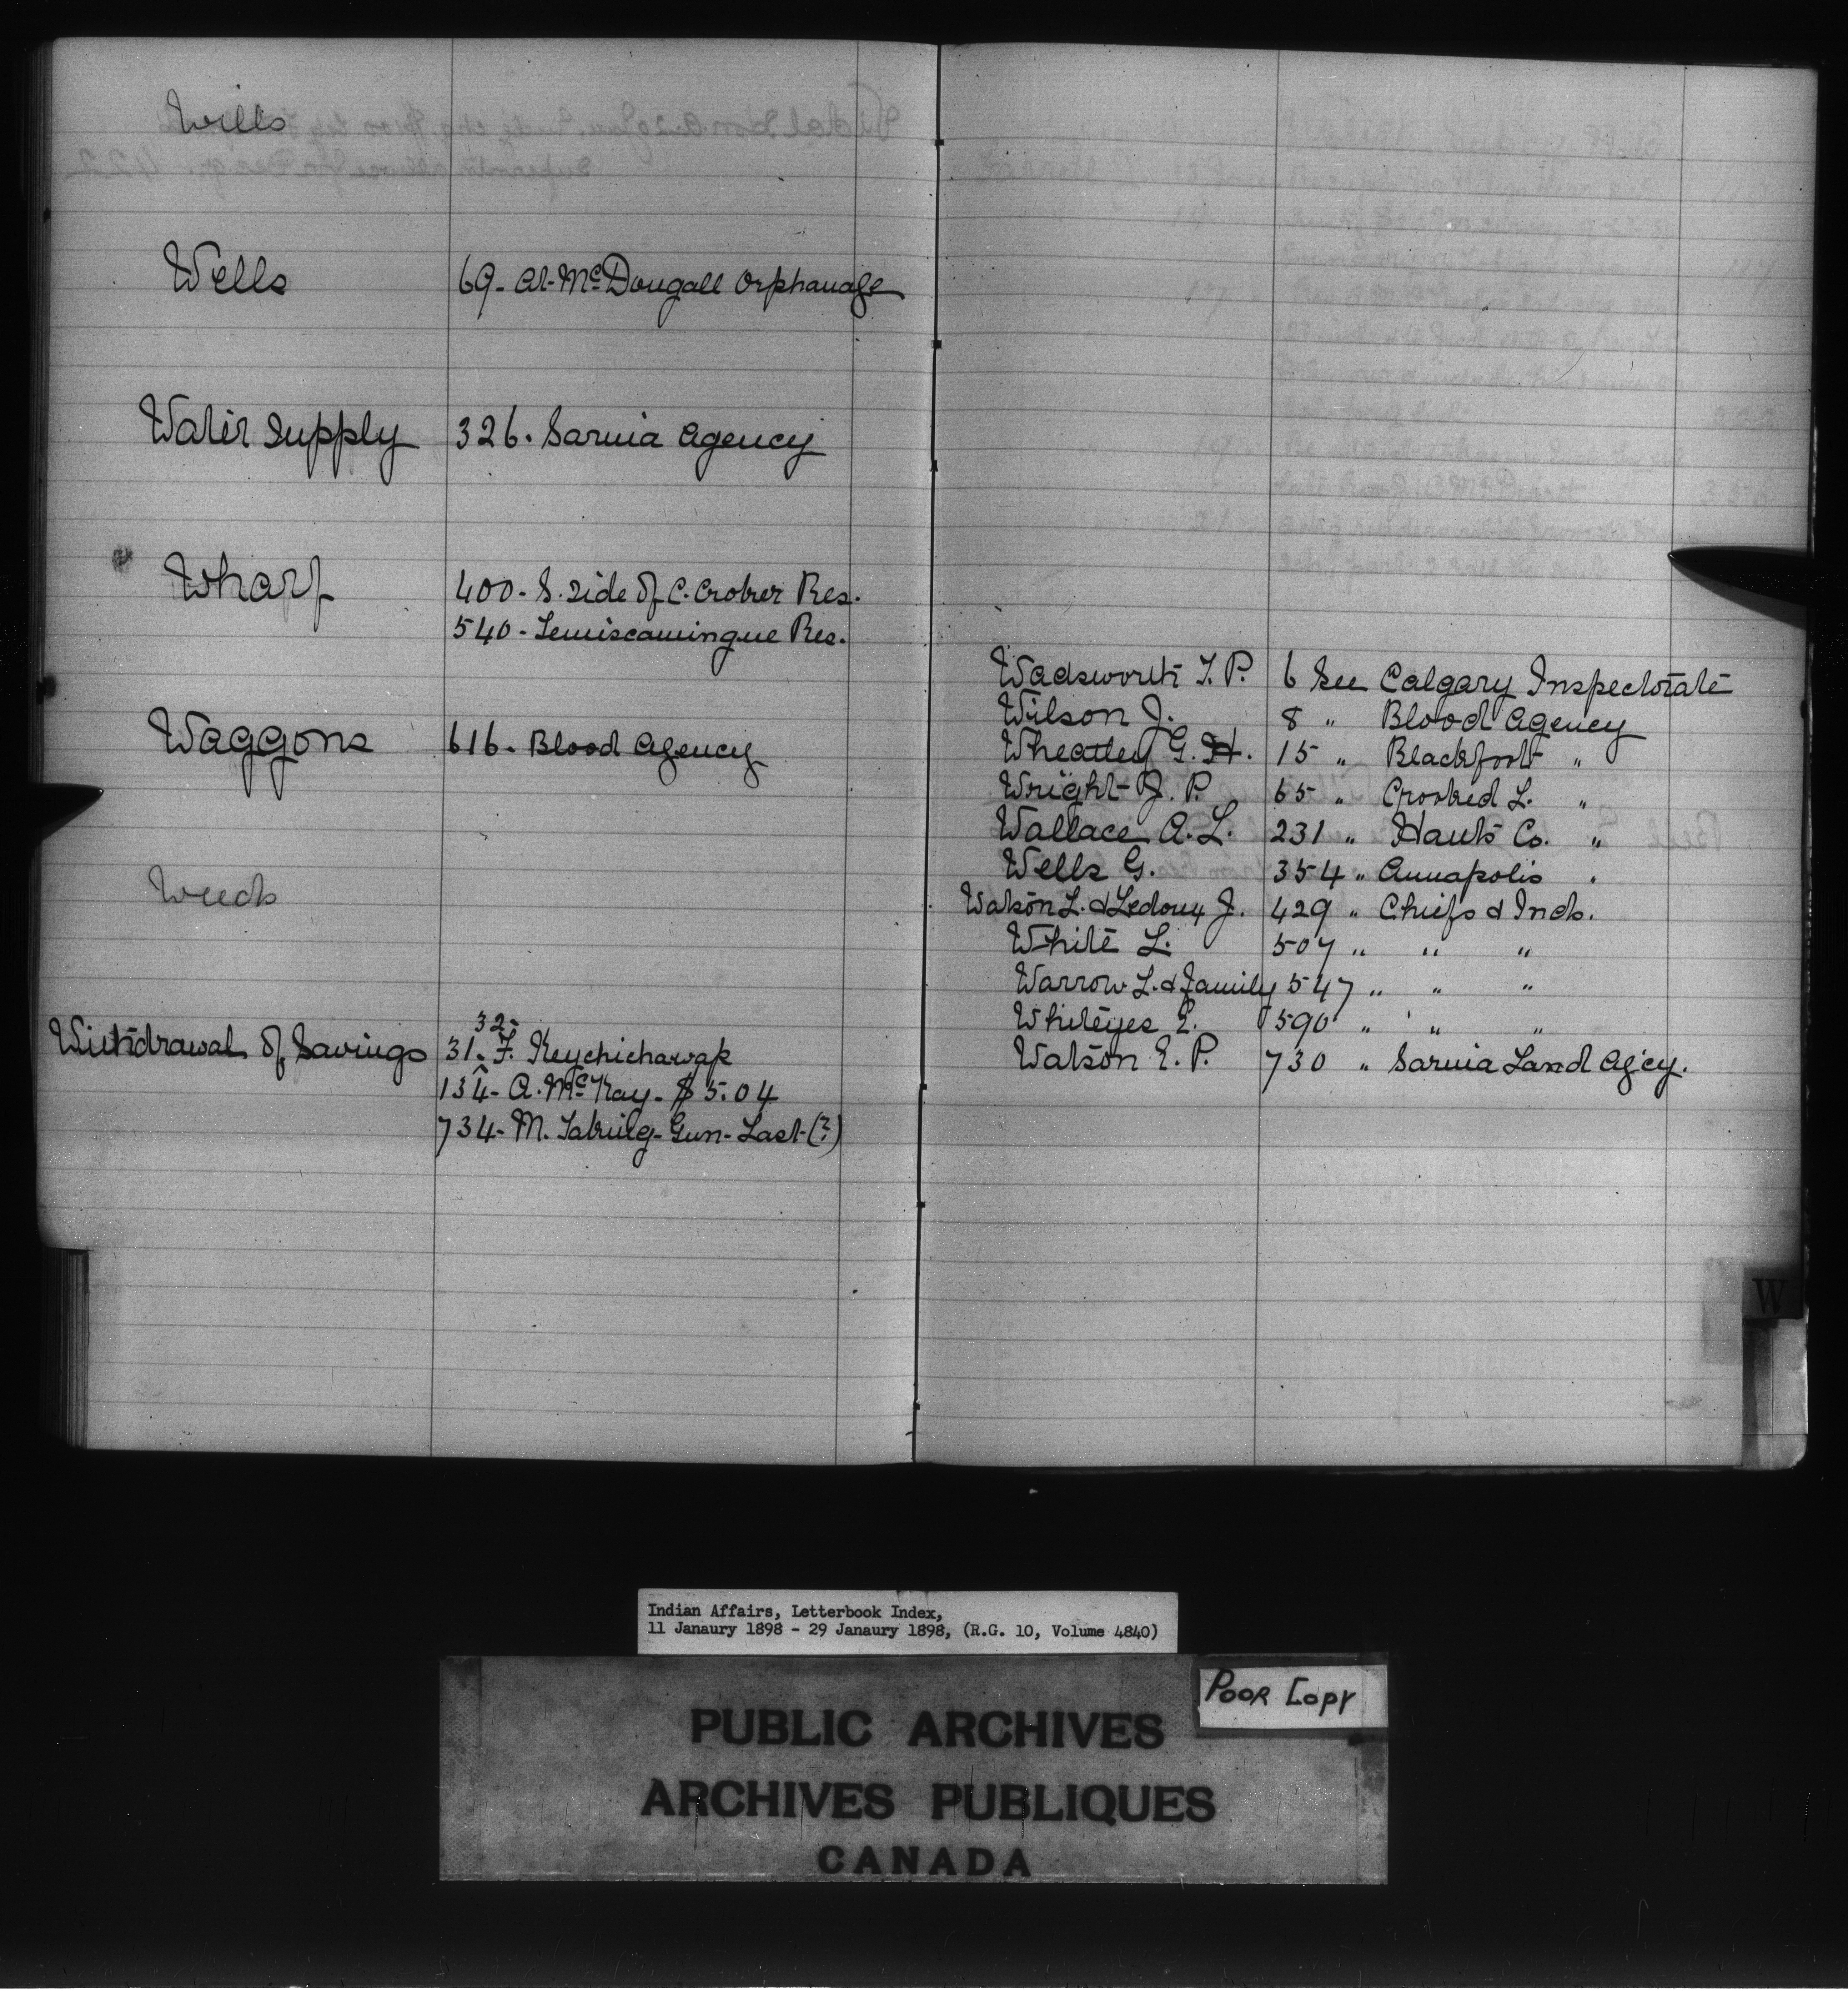 Wills
Wells 69- At McDougall Orphanage
Water Supply 326. Sarnia Agency
Wharf 400- S. side of C. Croker Res.
540- Temiscamingue Res.
Waggons 616- Blood Agency
Weeds
32-
Withdrawal of Savings 31. F. Keychichawap
134- A. McKay- $5.04
734- M. Gun- Last (?)
Wadsworth T. P. 6 See Calgary Inspectorate
Wilson J. 8 " Blood Agency
Wheatley G. H. 15 " Blackfoot "
Wright J. P. 65 " Crooked L. "
Wallace A. L. 231 " Hants Co. "
Wells G. 354 " Annapolis "
Watson L. & Ledoux J. 429 " Chiefs & Inds.
White L. 507 " " "
Warrow L. & family 547 " " "
Whiteyes E. 590 " " "
Watson E. P. 730 " Sarnia Land Ag'cy.
W
Indian Affairs, Letterbook Index,
11 Janaury 1898 - 29 Janaury 1898, (R.G. 10, Volume 4840)
Poor Copy
PUBLIC ARCHIVES
ARCHIVES PUBLIQUES
CANADA